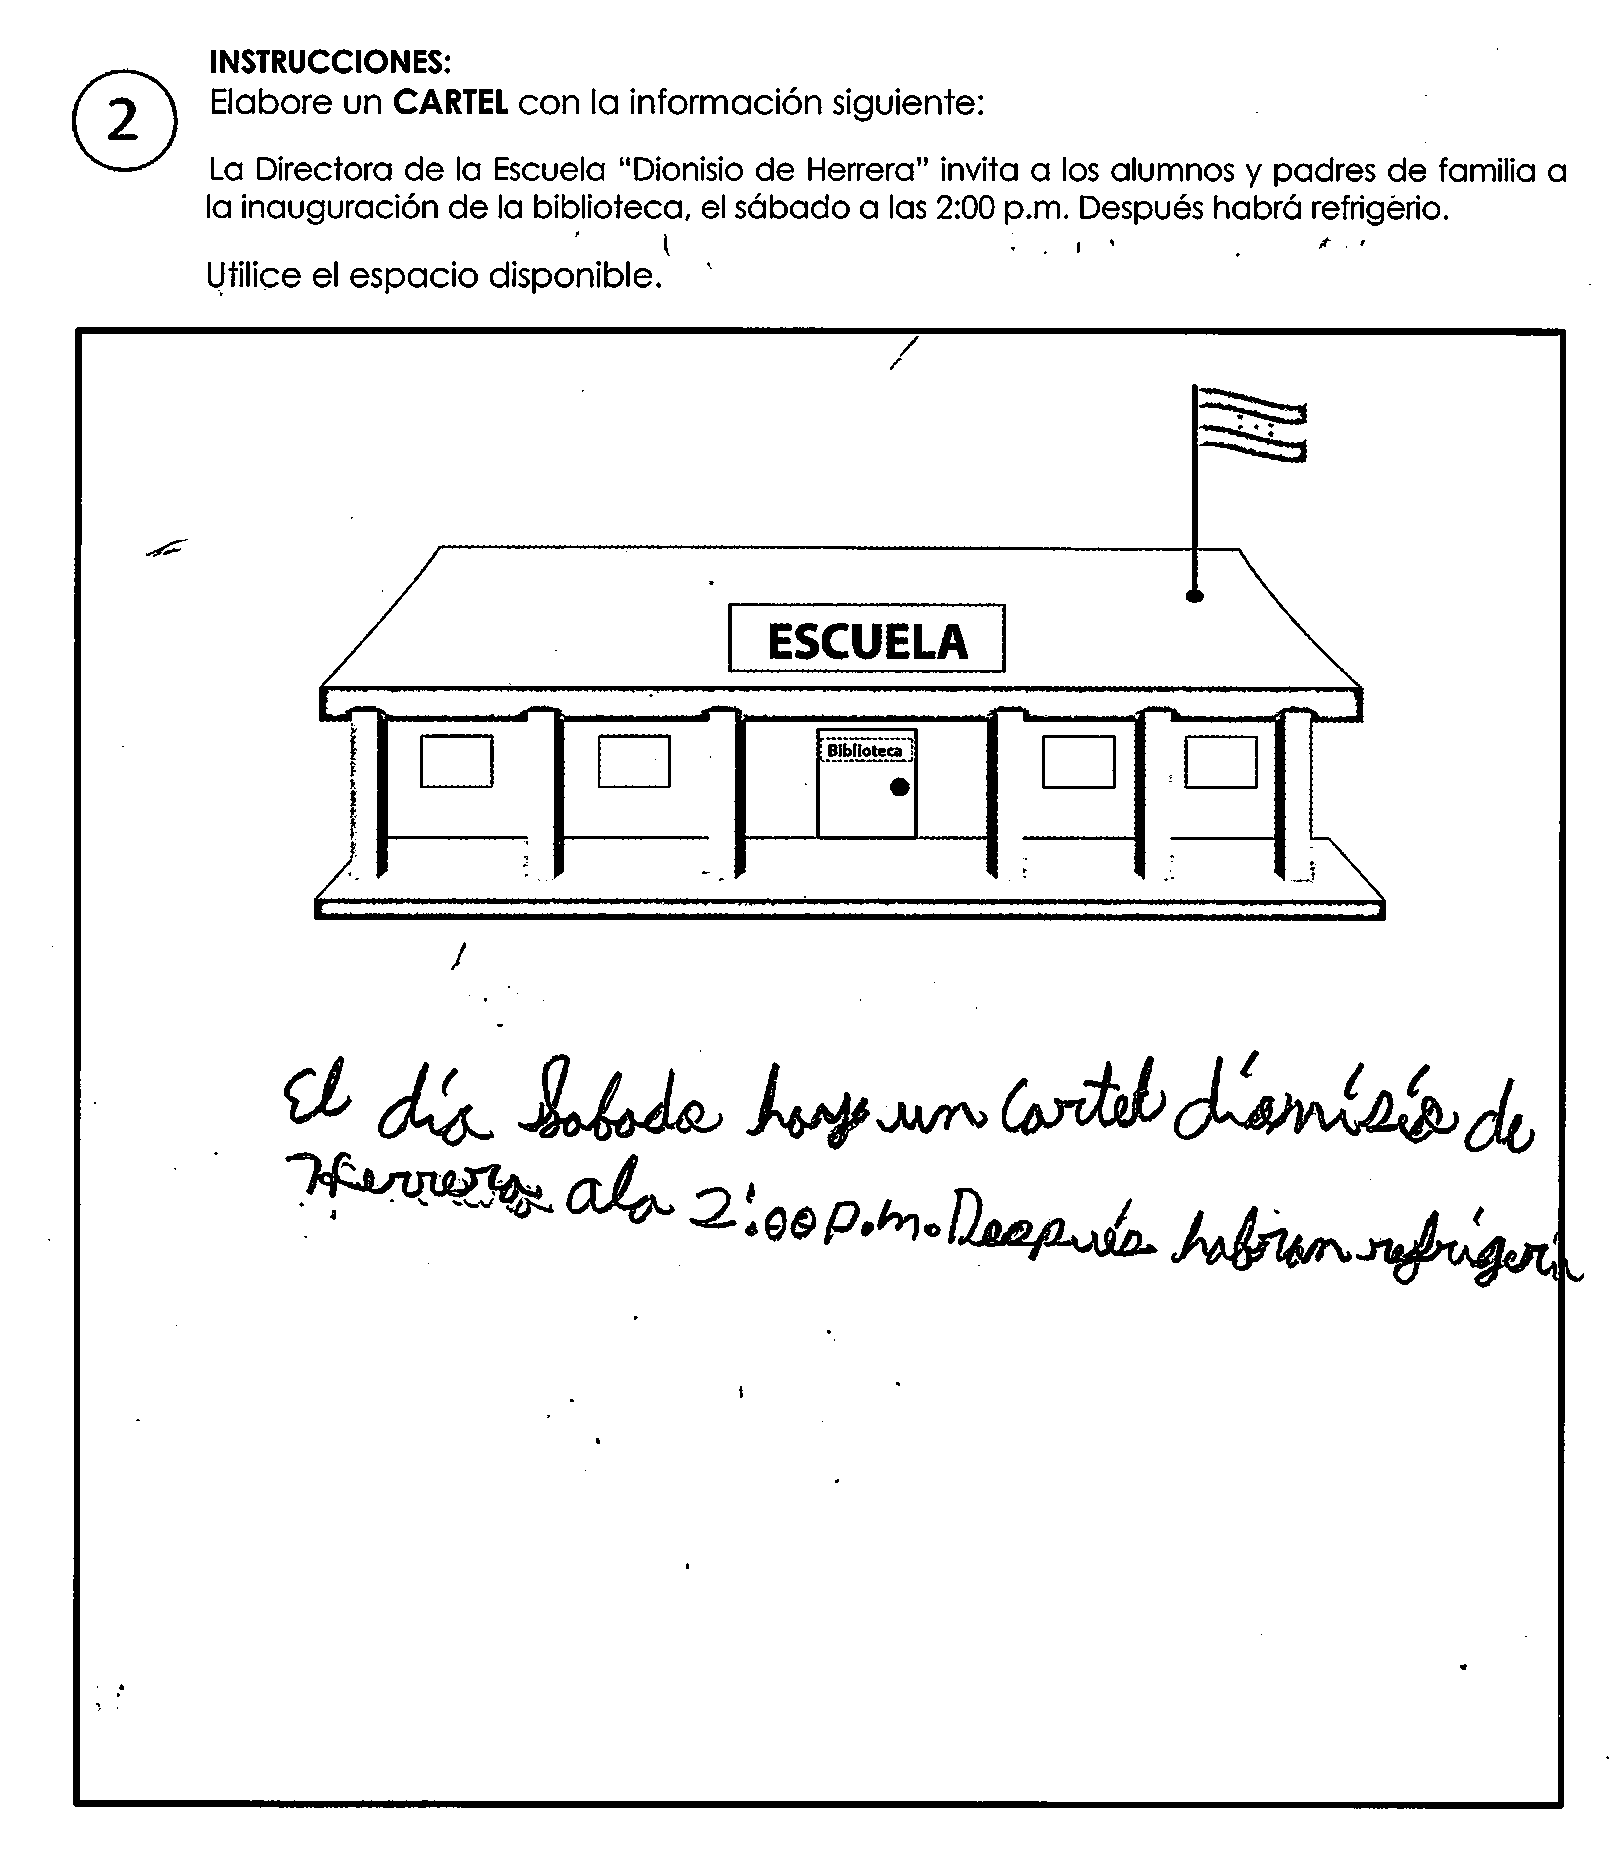 INSTRUCCIONES:
2
Elabore un CARTEL con la información siguiente:
La Directora de la Escuela "Dionisio de Herrera" invita a los alumnos y padres de familia a
la inauguración de la biblioteca, el sábado a las 2:00 p.m. Después habrá refrigerio.
Utilice el espacio disponible.
ESCUELA
Biblioteca
El día Sabado hay un Cartel dionisio de
Herrera ala 2:00 p.m. Después habran refrigeri